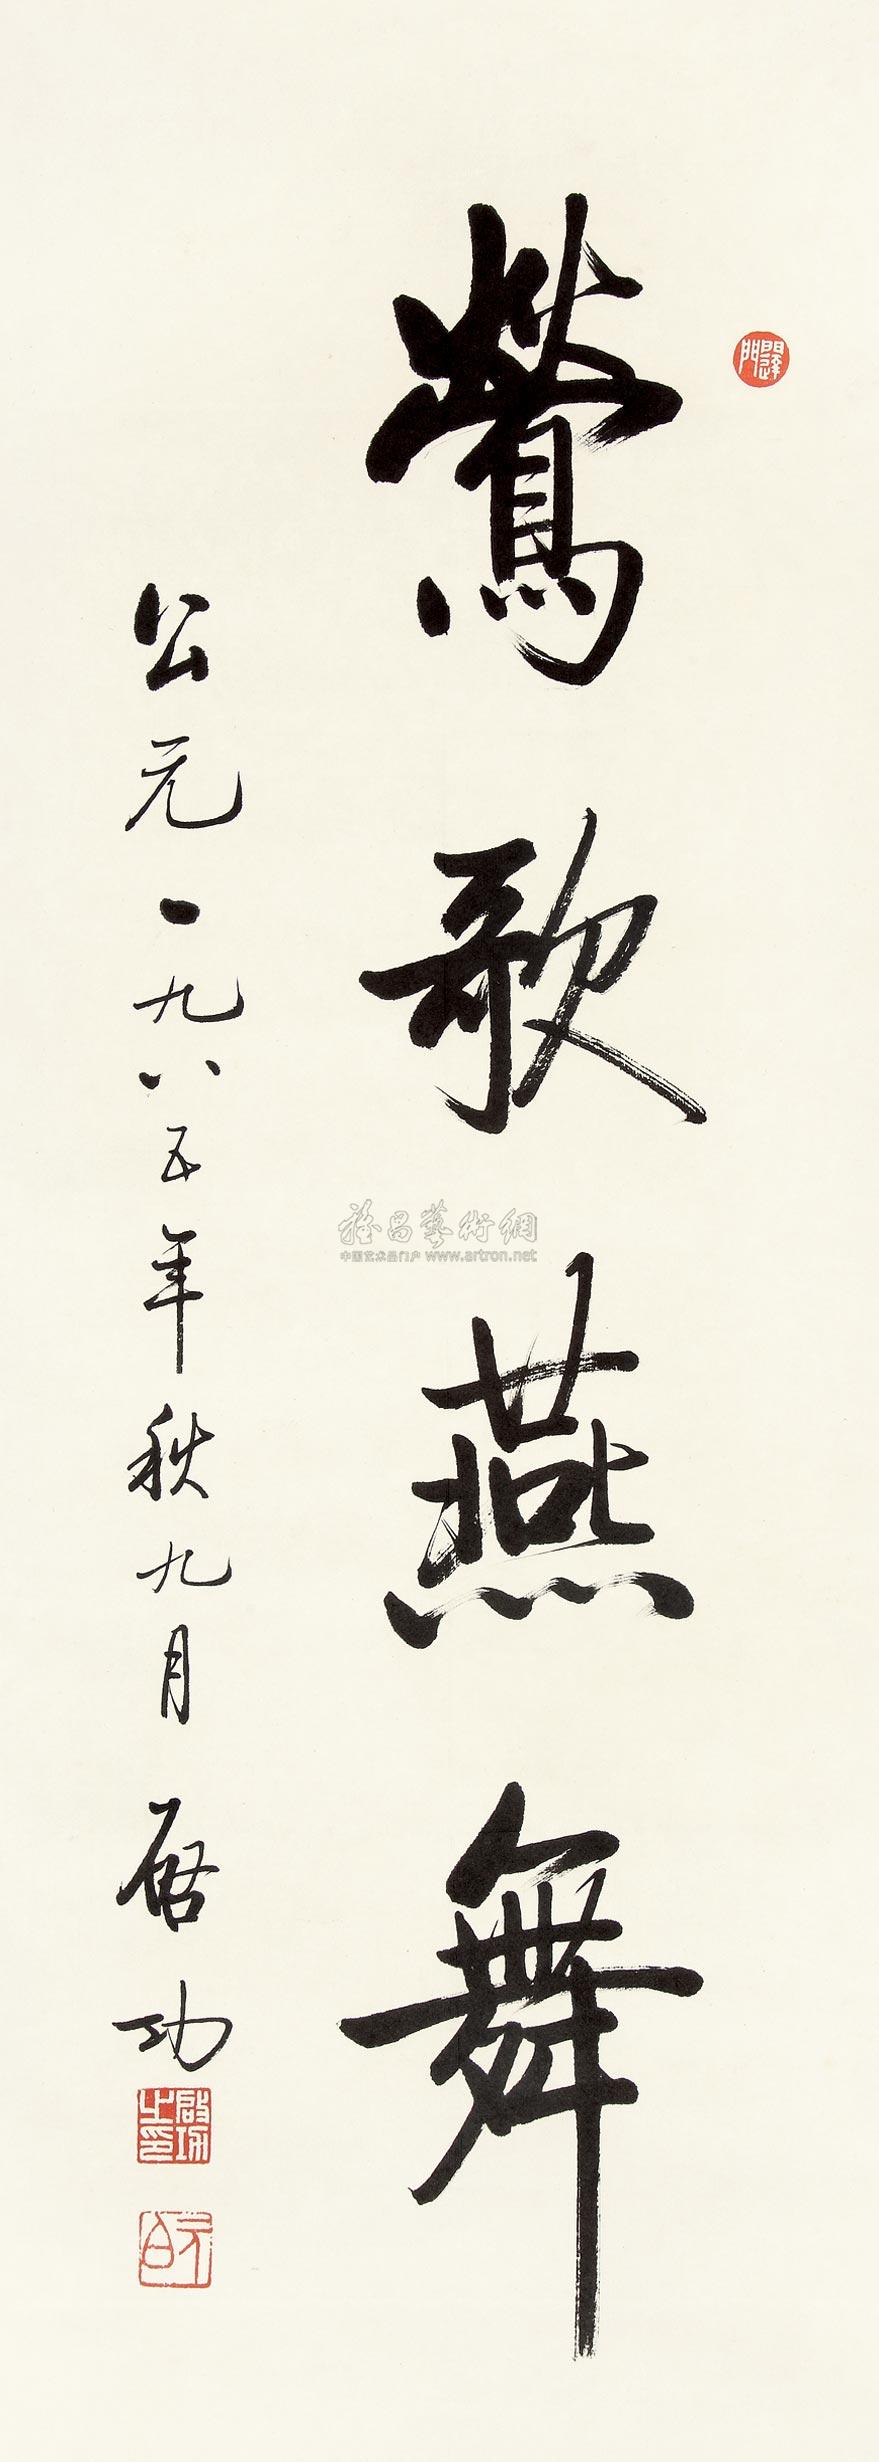 鶯歌燕舞
公元一九八五年秋九月 启功
啟功之印
雅昌藝術網
中国艺术品门户 www.artron.net